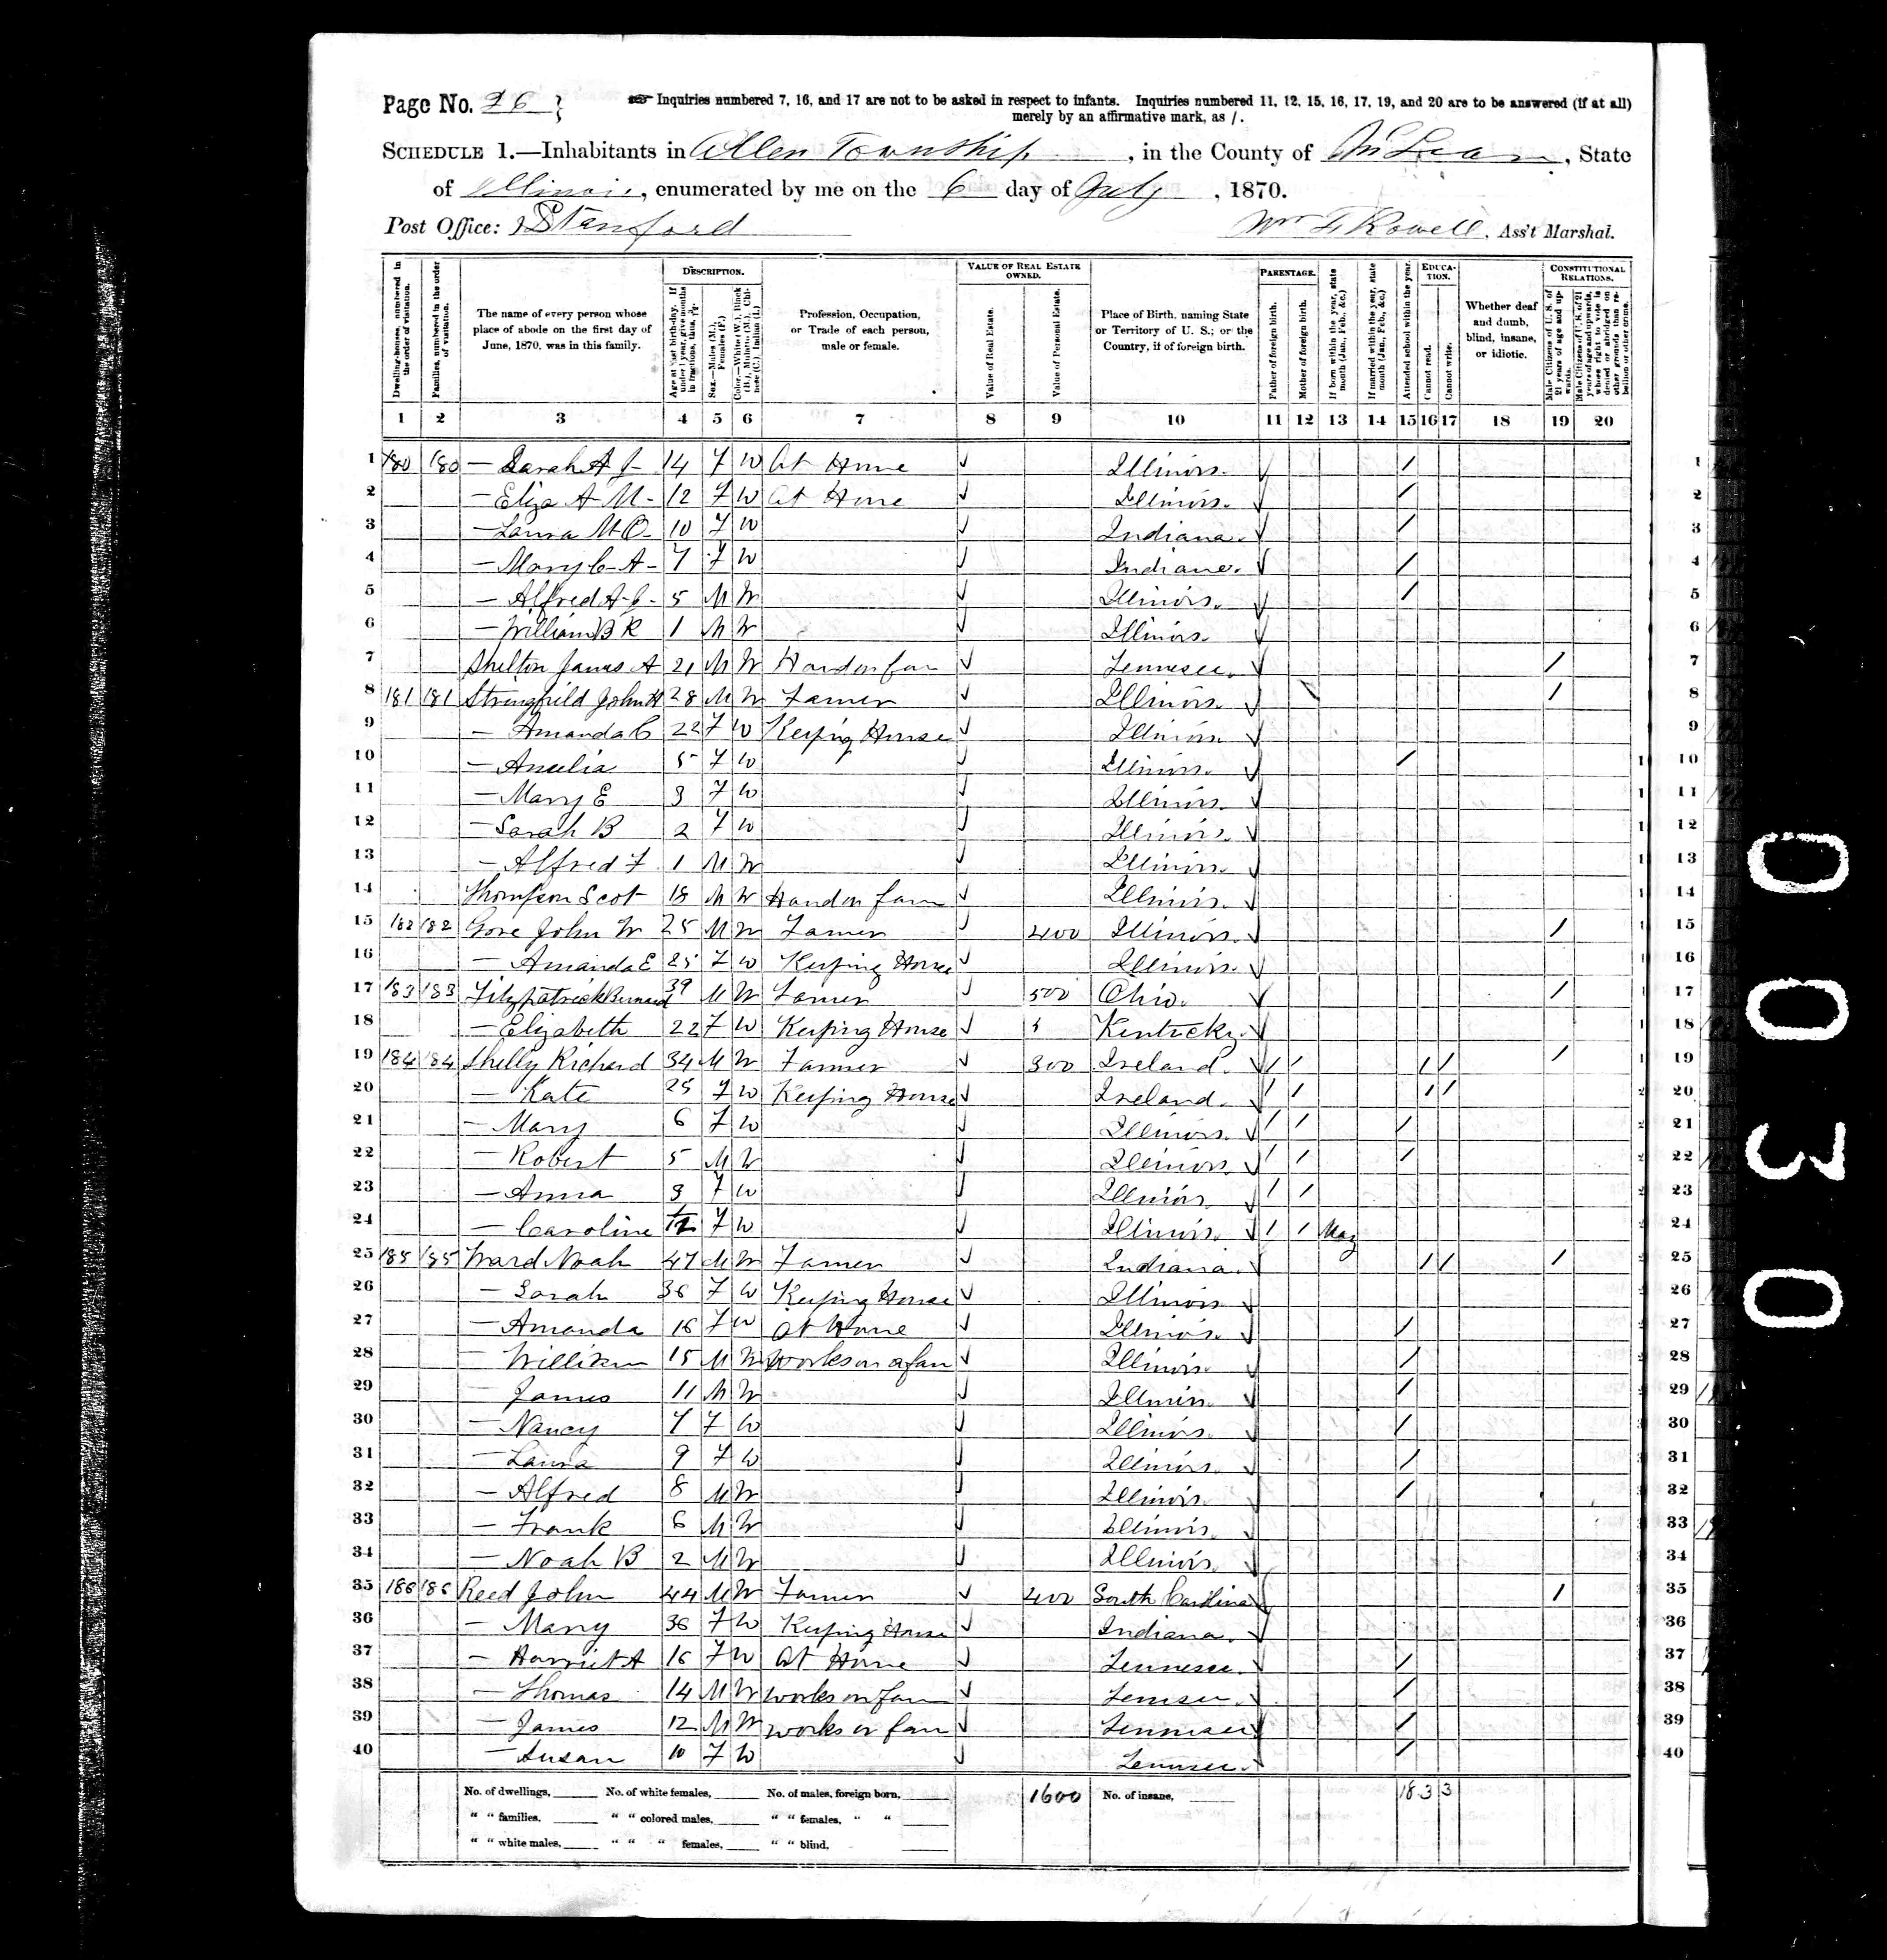 Page No. 26
Inquiries numbered 7, 16, and 17 are not to be asked in respect to infants. Inquiries numbered 11, 12, 15, 16, 17, 19, and 20 are to be answered (if at all)
merely by an affirmative mark, as /.
SCHEDULE 1.—Inhabitants in Allen Township, in the County of McLean, State
of Illinois, enumerated by me on the 6 day of July, 1870.
Post Office: Stanford Wm Rowell, Ass't Marshal.
Dwelling-houses, numbered in the order of visitation.
Families, numbered in the order of visitation.
The name of every person whose place of abode on the first day of June, 1870, was in this family.
DESCRIPTION.
Age at last birth-day. If under 1 year, give months in fractions, thus,
Sex.—Males (M.), Females (F.)
Color.—White (W.), Black (B.), Mulatto (M.), Chinese (C.), Indian (I.)
Profession, Occupation, or Trade of each person, male or female.
VALUE OF REAL ESTATE OWNED.
Value of Real Estate.
Value of Personal Estate.
Place of Birth, naming State or Territory of U. S.; or the Country, if of foreign birth.
PARENTAGE.
Father of foreign birth.
Mother of foreign birth.
If born within the year, state month (Jan., Feb., &c.)
If married within the year, state month (Jan., Feb., &c.)
Attended school within the year.
EDUCATION.
Cannot read.
Cannot write.
Whether deaf and dumb, blind, insane, or idiotic.
CONSTITUTIONAL RELATIONS.
Male Citizens of U. S. of 21 years of age and upwards.
Male Citizens of U. S. of 21 years of age and upwards, whose right to vote is denied or abridged on other grounds than rebellion or other crime.
1 2 3 4 5 6 7 8 9 10 11 12 13 14 15 16 17 18 19 20
1 180 180 — Sarah A J — 14 F W At Home Illinois / 1
2 — Eliza A M — 12 F W At Home Illinois / 2
3 — Laura M O — 10 F W Indiana / 3
4 — Mary C A — 7 F W Indiana / 4
5 — Alfred A J — 5 M W Illinois / 5
6 — William B R 1 M W Illinois 6
7 Shelton James A 21 M W Hand on farm Tennessee / 7
8 181 181 Stringfield John H 28 M W Farmer Illinois / 8
9 — Amanda C 22 F W Keeping House Illinois 9
10 — Amelia 5 F W Illinois / 10
11 — Mary E 3 F W Illinois 11
12 — Sarah B 2 F W Illinois 12
13 — Alfred F 1 M W Illinois 13
14 Thompson Scot 18 M W Hand on farm Illinois 14
15 182 182 Gore John W 25 M W Farmer 400 Illinois / 15
16 — Amanda E 25 F W Keeping House Illinois 16
17 183 183 Fitzpatrick Bernard 39 M W Farmer 500 Ohio / 17
18 — Elizabeth 22 F W Keeping House Kentucky 18
19 184 184 Shelly Richard 34 M W Farmer 300 Ireland / / / / / 19
20 — Kate 25 F W Keeping House Ireland / / / / 20
21 — Mary 6 F W Illinois / / / 21
22 — Robert 5 M W Illinois / / / 22
23 — Anna 3 F W Illinois / / 23
24 — Caroline 1/12 F W Illinois / / May 24
25 185 185 Ward Noah 47 M W Farmer Indiana / / / 25
26 — Sarah 36 F W Keeping House Illinois 26
27 — Amanda 16 F W At Home Illinois / 27
28 — William 15 M W Works on a farm Illinois / 28
29 — James 11 M W Illinois / 29
30 — Nancy 7 F W Illinois / 30
31 — Laura 9 F W Illinois / 31
32 — Alfred 8 M W Illinois / 32
33 — Frank 6 M W Illinois 33
34 — Noah B 2 M W Illinois 34
35 186 186 Reed John 44 M W Farmer 400 South Carolina / 35
36 — Mary 36 F W Keeping House Indiana 36
37 — Harriet A 16 F W At Home Tennessee / 37
38 — Thomas 14 M W works on farm Tennessee / 38
39 — James 12 M W works on farm Tennessee / 39
40 — Susan 10 F W Tennessee / 40
No. of dwellings, No. of white females, No. of males, foreign born, 1600 No. of insane, 18 3 3
" " families, " " colored males, " " females, " "
" " white males, " " " females, " " blind,
0030